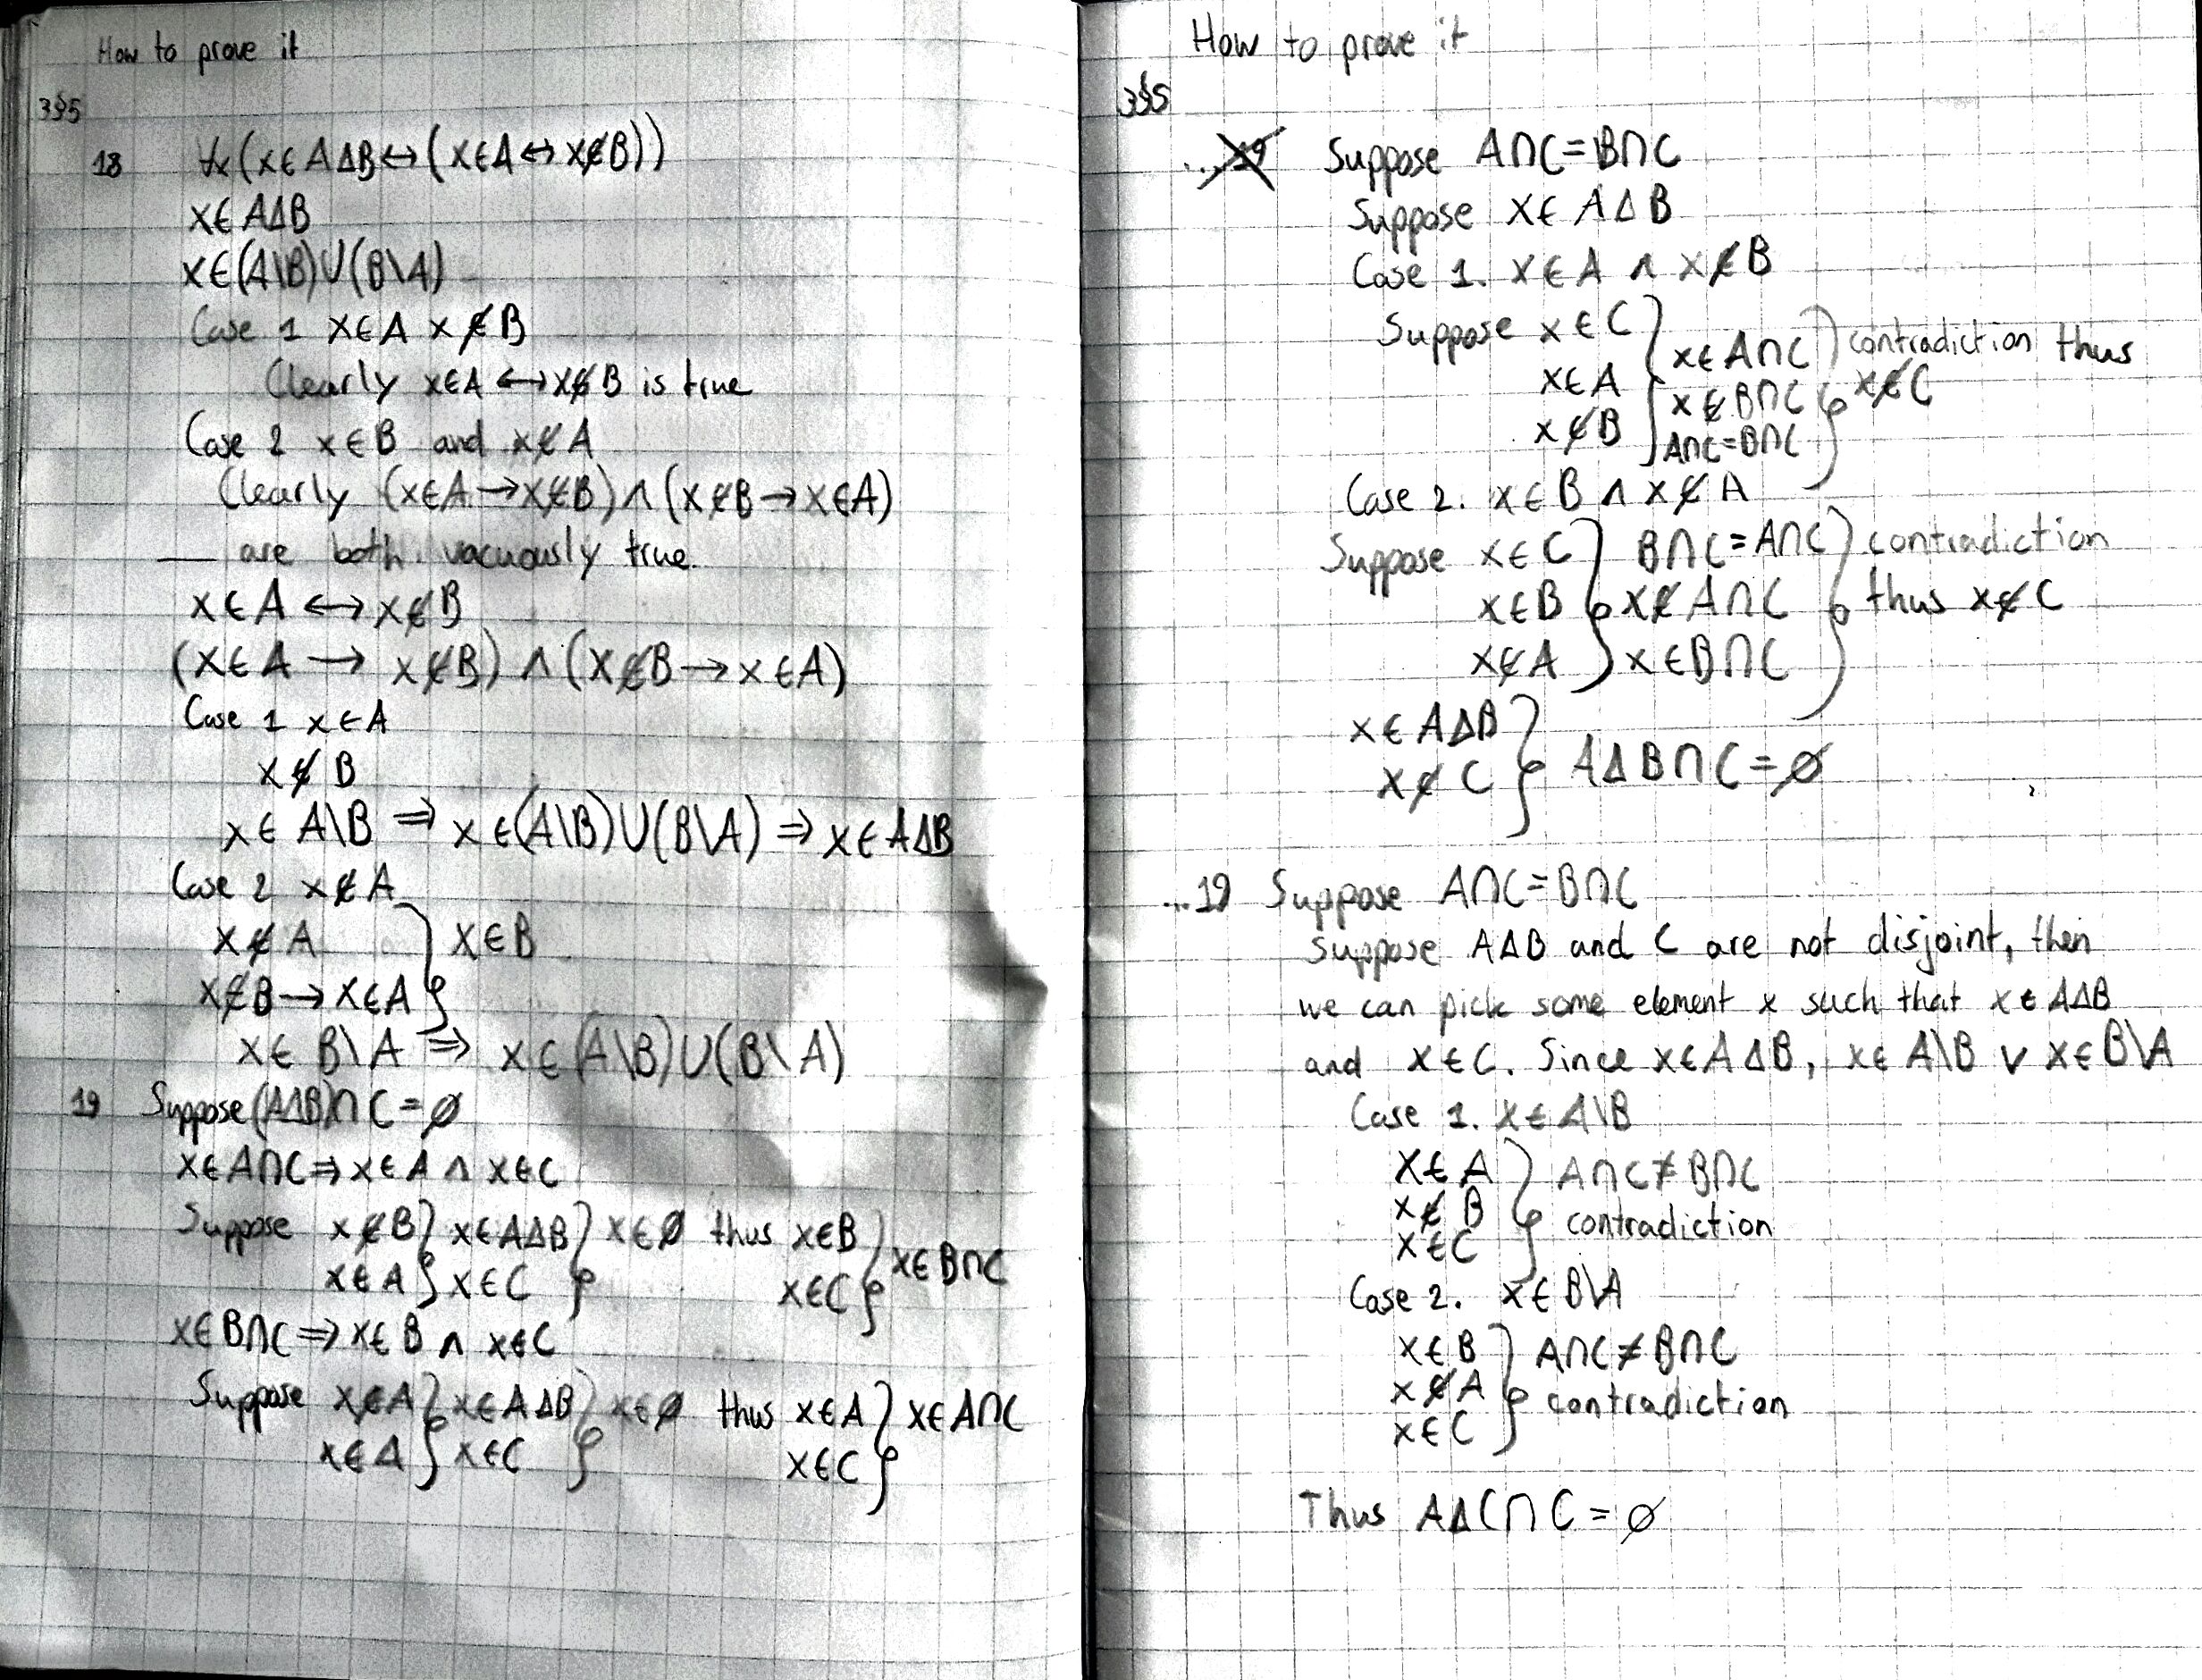 How to prove it
3§5
18 ∀x(x∈AΔB↔(x∈A↔x∉B))
x∈AΔB
x∈(A\B)∪(B\A)
Case 1 x∈A x∉B
Clearly x∈A↔x∉B is true
Case 2 x∈B and x∉A
Clearly (x∈A→x∉B)∧(x∉B→x∈A)
are both vacuously true.
x∈A↔x∉B
(x∈A→x∉B)∧(x∉B→x∈A)
Case 1 x∈A
x∉B
x∈A\B⇒x∈(A\B)∪(B\A)⇒x∈AΔB
Case 2 x∉A
x∉A } x∈B
x∉B→x∈A
x∈B\A⇒x∈(A\B)∪(B\A)
19 Suppose (AΔB)∩C=∅
x∈A∩C⇒x∈A∧x∈C
Suppose x∉B } x∈AΔB } x∈∅ thus x∈B } x∈B∩C
x∈A } x∈C } x∈C }
x∈B∩C⇒x∈B∧x∈C
Suppose x∉A } x∈AΔB } x∈∅ thus x∈A } x∈A∩C
x∈A } x∈C } x∈C }
How to prove it
3§5
...19 Suppose A∩C=B∩C
Suppose x∈AΔB
Case 1. x∈A∧x∉B
Suppose x∈C } x∈A∩C } contradiction thus
x∈A } x∉B∩C } x∉C
x∉B } A∩C=B∩C
Case 2. x∈B∧x∉A
Suppose x∈C } B∩C=A∩C } contradiction
x∈B } x∉A∩C } thus x∉C
x∉A } x∈B∩C
x∈AΔB } AΔB∩C=∅
x∉C
...19 Suppose A∩C=B∩C
Suppose AΔB and C are not disjoint, then
we can pick some element x such that x∈AΔB
and x∈C. Since x∈AΔB, x∈A\B∨x∈B\A
Case 1. x∈A\B
x∈A } A∩C≠B∩C
x∉B } contradiction
x∈C
Case 2. x∈B\A
x∈B } A∩C≠B∩C
x∉A } contradiction
x∈C
Thus AΔC∩C=∅